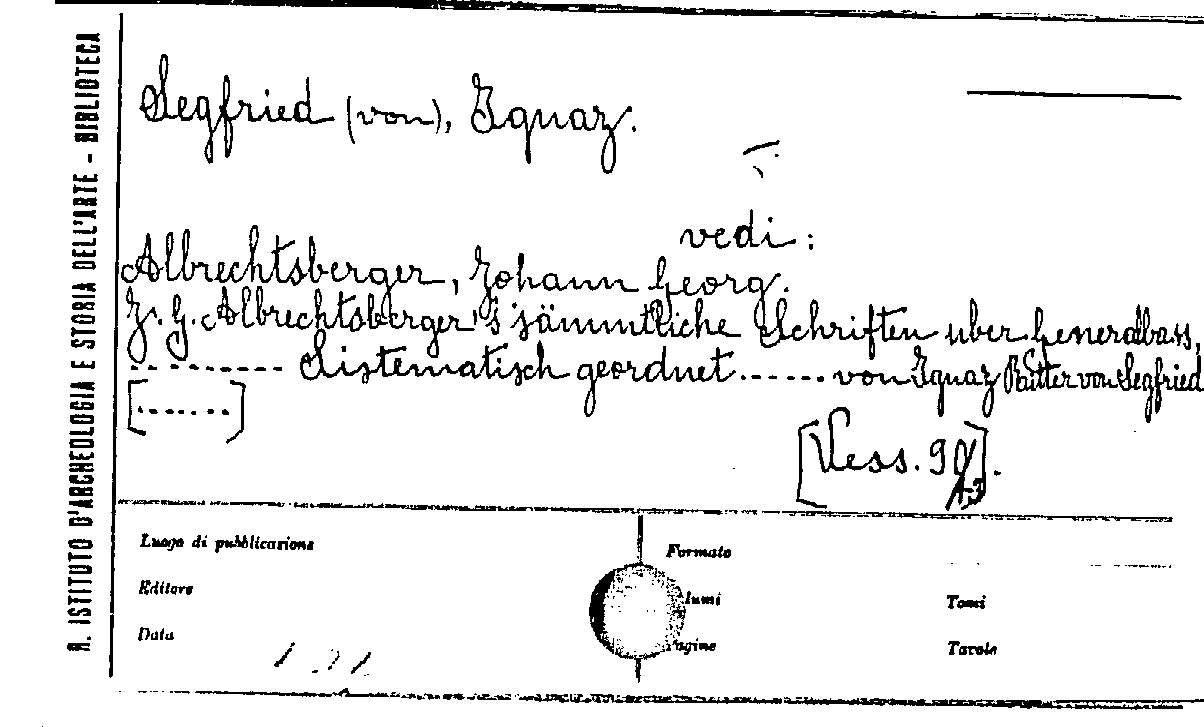 R. ISTITUTO D'ARCHEOLOGIA E STORIA DELL'ARTE - BIBLIOTECA
Segfried (von), Ignaz.
vedi :
Albrechtsberger, Johann Georg.
J. G. Albrechtsberger's sämmtliche Schriften uber Generalbass,
............ Sistematisch geordnet ...... von Ignaz Ritter von Segfried
[.......]
[Vess. 90/13].
Luogo di pubblicazione
Formato
Editore
lumi
Tomi
Data
Pagine
Tavole